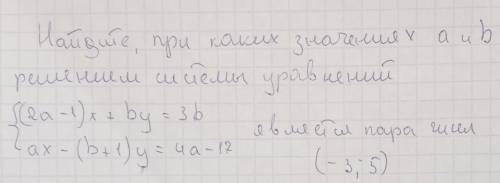 Найдите, при каких значениях a и b
решением системы уравнений
{(2a-1)x + by = 3b
{ax - (b+1)y = 4a-17 является пара чисел
(-3;-5)